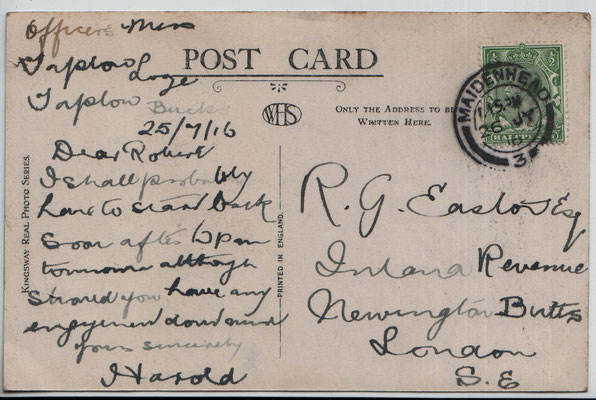 Officers Mess
Taplow Loge
Taplow Bucks
25/7/16
Dear Robert
I shall probably
have to start back
soon after 6 pm
tomorrow although
should you have any
engagement dont mind
yours sincerely
Harold
KINGSWAY REAL PHOTO SERIES.
POST CARD
WHS
PRINTED IN ENGLAND.
ONLY THE ADDRESS TO BE
WRITTEN HERE.
MAIDENHEAD
26 JY
3
R. G. Easton Esq
Inland Revenue
Newington Butts
London
S.E